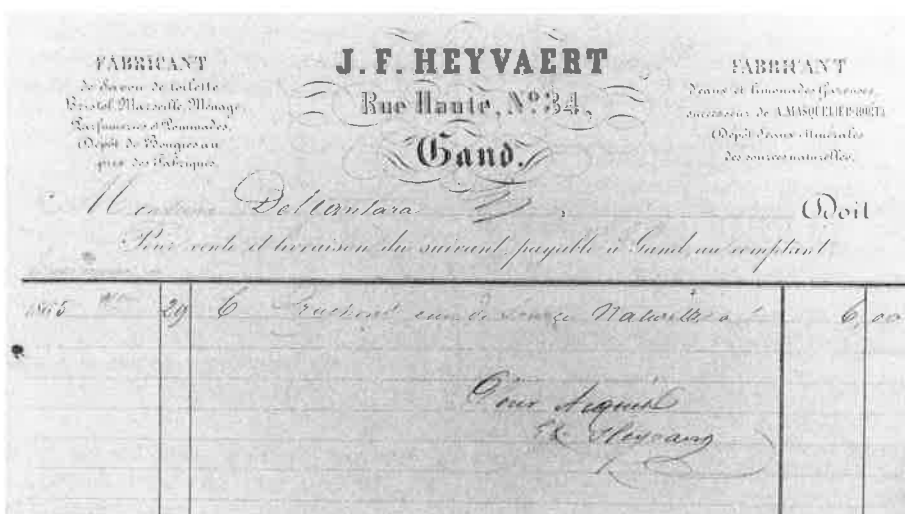 FABRICANT
de Savon de toilette
Bristol, Marseille, Ménage,
Parfumeries et Pommades,
Dépôt de Bougies au
prix des Fabriques.
J. F. HEYVAERT
Rue Haute, Nº 34,
Gand.
FABRICANT
d'eaux et limonades Gazeuses,
successeur de A. MASQUELIER-
Dépôt d'eaux Minérales
des sources naturelles.
Doit
Pour vente et livraison du suivant payable à Gand, au comptant,
1865 29 6 eau de Naturelle à 6,00
Pour Acquit